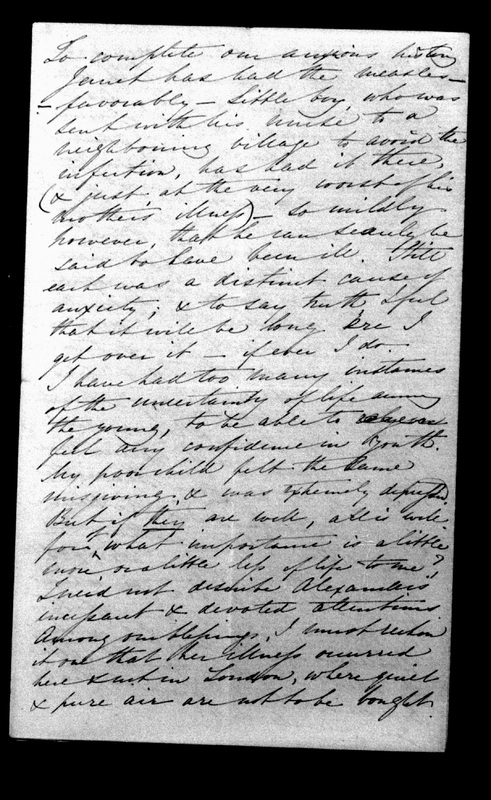 To complete our anxious history
Janet has had the measles –
– favorably – Little boy, who was
sent with his nurse to a
neighbouring village to avoid the
infection, has had it there,
(& just at the very worst of his
brother's illness) – so mildly
however, that he can scarcely be
said to have been ill. Still
each was a distinct cause of
anxiety; & to say truth, I feel
that it will be long ere I
get over it – if ever I do.
I have had too many instances
of the uncertainty of life among
the young, to be able to
feel any confidence in youth.
My poor child felt the same
misgiving, & was extremely depressed
But if they are well, all is well.
for what importance is a little
more or a little less of life to me?
I need not describe Alexander's
incessant & devoted attentions
Among our blessings, I must reckon
it one that her illness occurred
here & not in London, where quiet
& pure air are not to be bought.